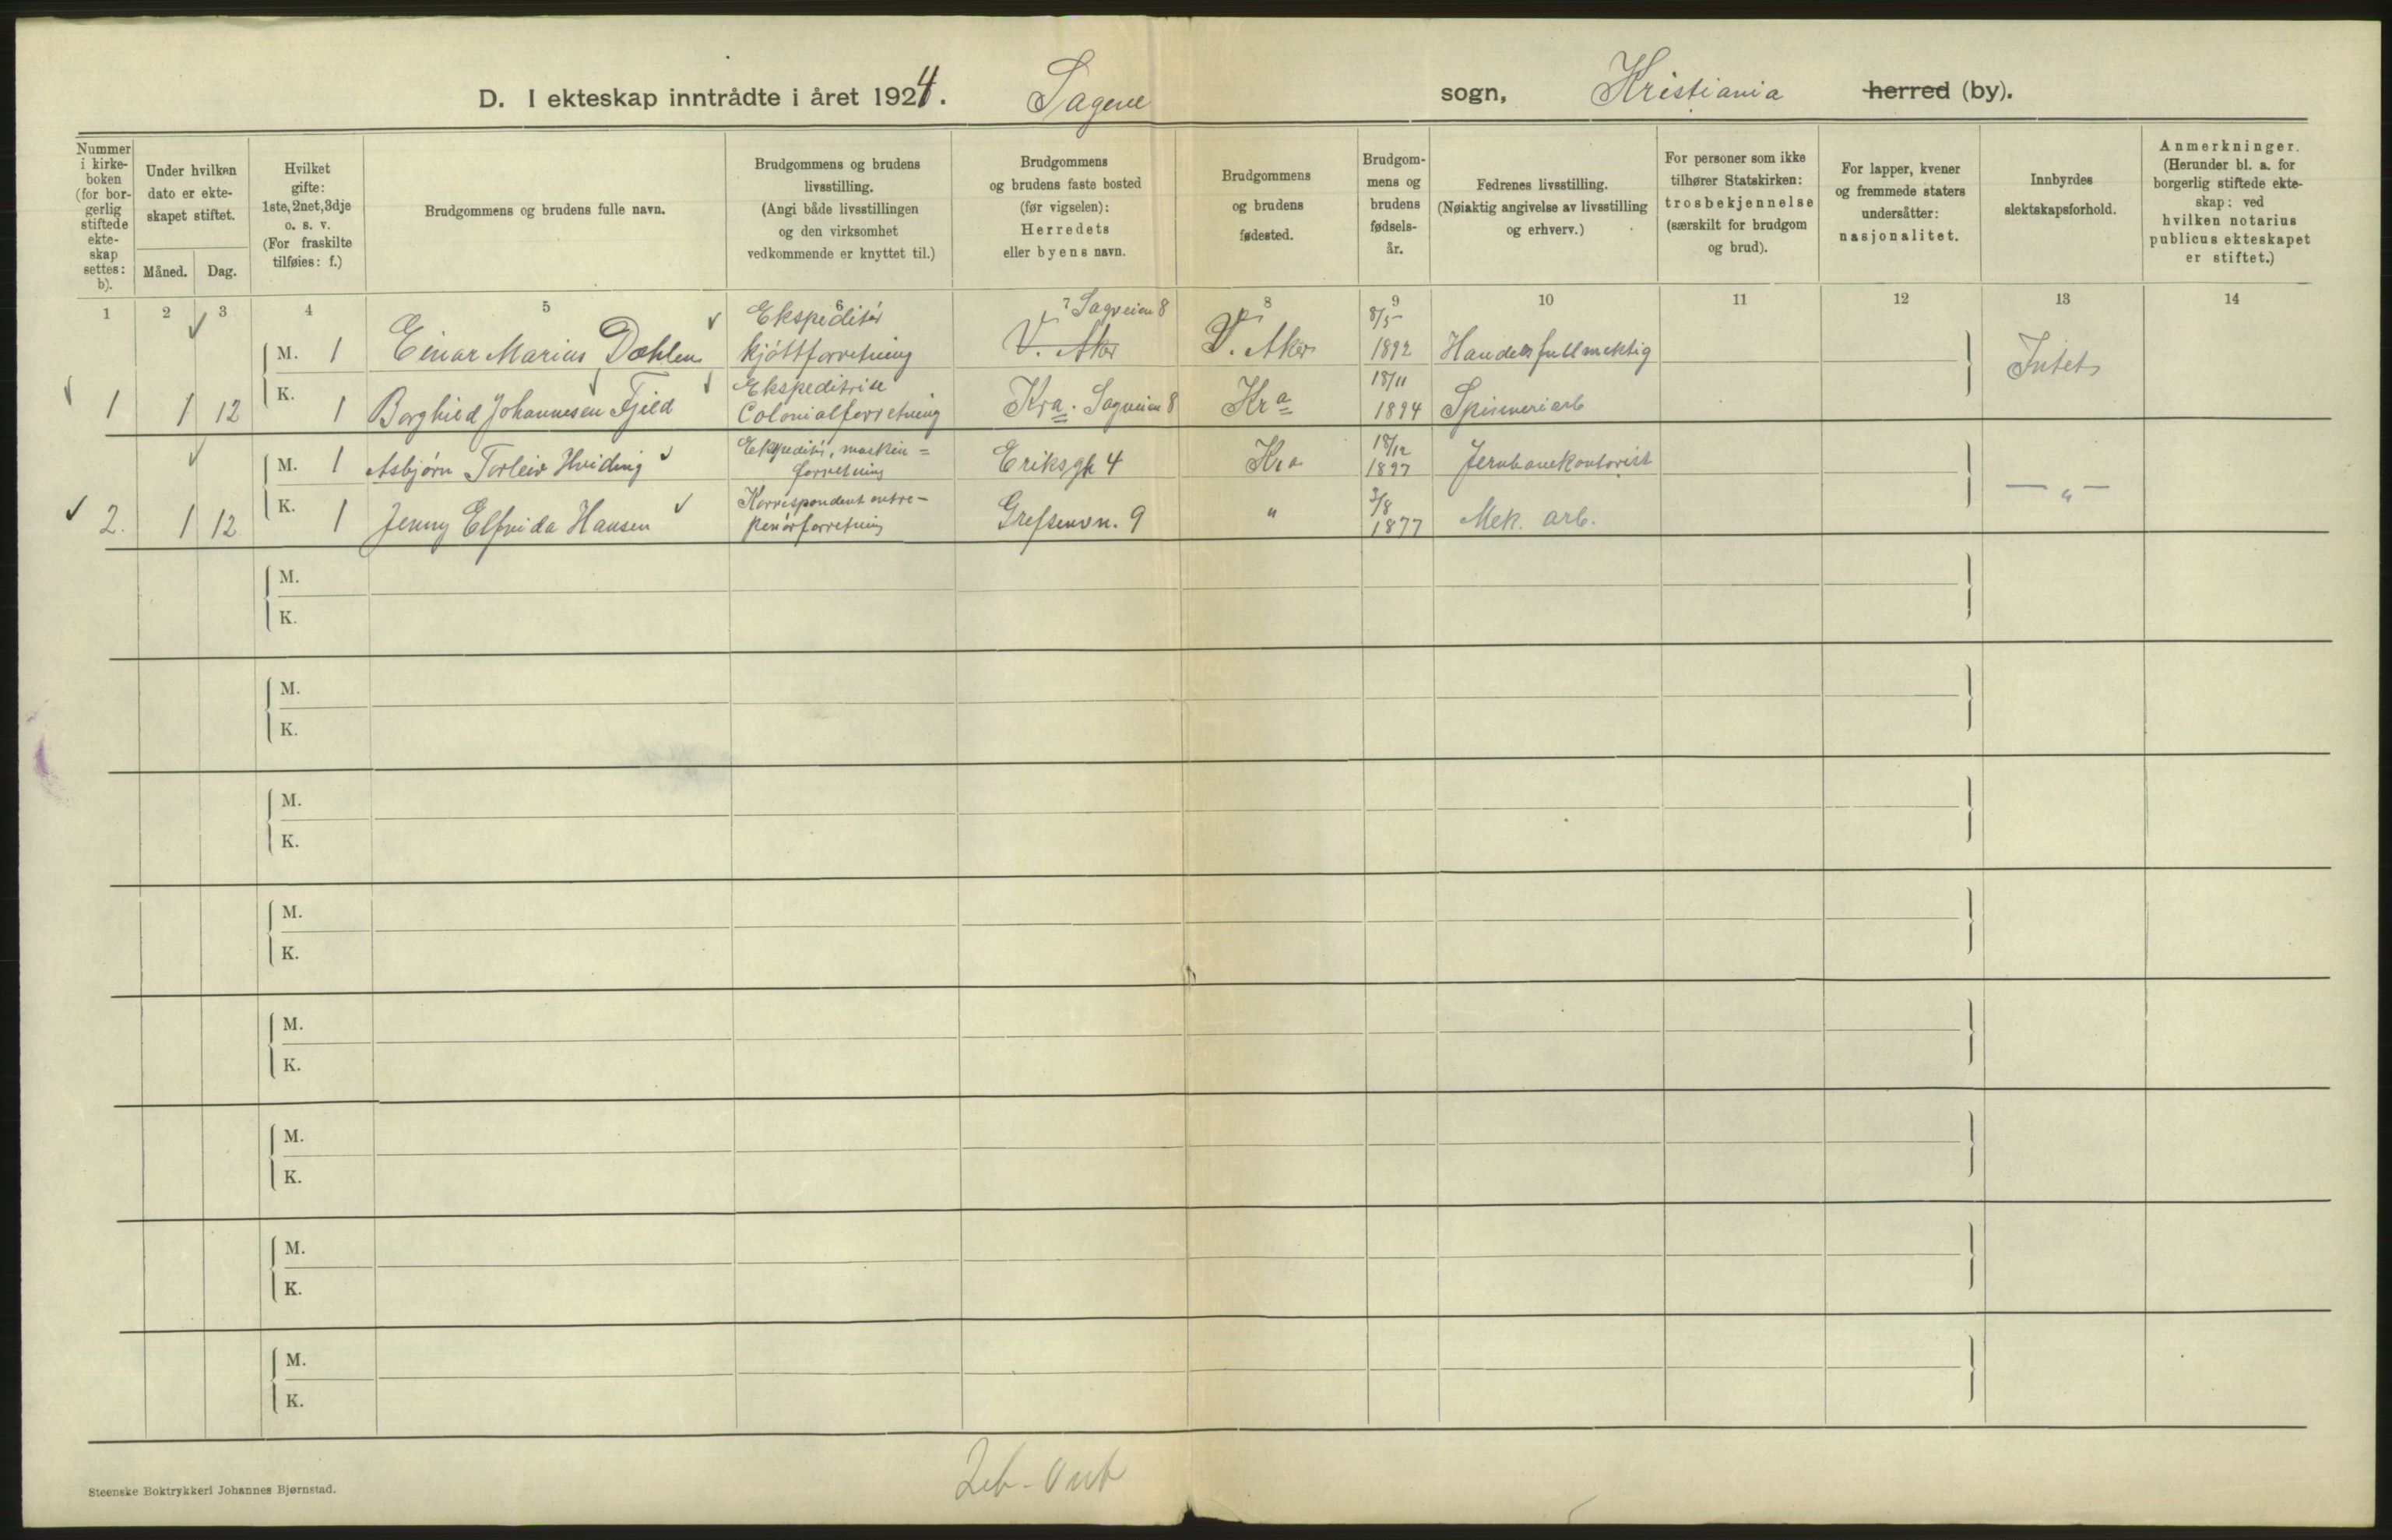 D. I ekteskap inntrådte i året 1924. Sagene sogn, Kristiania herred (by).
Nummer i kirkeboken (for borgerlig stiftede ekteskap settes: b).
Under hvilken dato er ekteskapet stiftet.
Måned. Dag.
Hvilket gifte: 1ste, 2net, 3dje o. s. v. (For fraskilte tilføies: f.)
Brudgommens og brudens fulle navn.
Brudgommens og brudens livsstilling. (Angi både livsstillingen og den virksomhet vedkommende er knyttet til.)
Brudgommens og brudens faste bosted (før vigselen): Herredets eller byens navn.
Brudgommens og brudens fødested.
Brudgommens og brudens fødselsår.
Fedrenes livsstilling. (Nøiaktig angivelse av livsstilling og erhverv.)
For personer som ikke tilhører Statskirken: trosbekjennelse (særskilt for brudgom og brud).
For lapper, kvener og fremmede staters undersåtter: nasjonalitet.
Innbyrdes slektskapsforhold.
Anmerkninger. (Herunder bl. a. for borgerlig stiftede ekteskap: ved hvilken notarius publicus ekteskapet er stiftet.)
1 2 3 4 5 6 7 8 9 10 11 12 13 14
M. 1 Einar Marius Dæhlen Ekspeditør kjøttforretning V. Aker Sagveien 8 V. Aker 8/5 1892 Handelsfullmektig Intet
1 1 12 K. 1 Borghild Johannesen Fjeld Ekspeditrise Colonialforretning Kra. Sagveien 8 Kra 18/11 1894 Spinneriarb
M. 1 Asbjørn Torleiv Hviding Ekspeditør, maskin= forretning Eriksgt 4 Kra 18/12 1897 Jernbanekontorist — " —
2. 1 12 K. 1 Jenny Elfrida Hansen Korrespondent entre- penørforretning Grefsenvn. 9 " 3/8 1877 Mek. arb.
M.
K.
M.
K.
M.
K.
M.
K.
M.
K.
M.
K.
M.
K.
M.
K.
Steenske Boktrykkeri Johannes Bjørnstad.